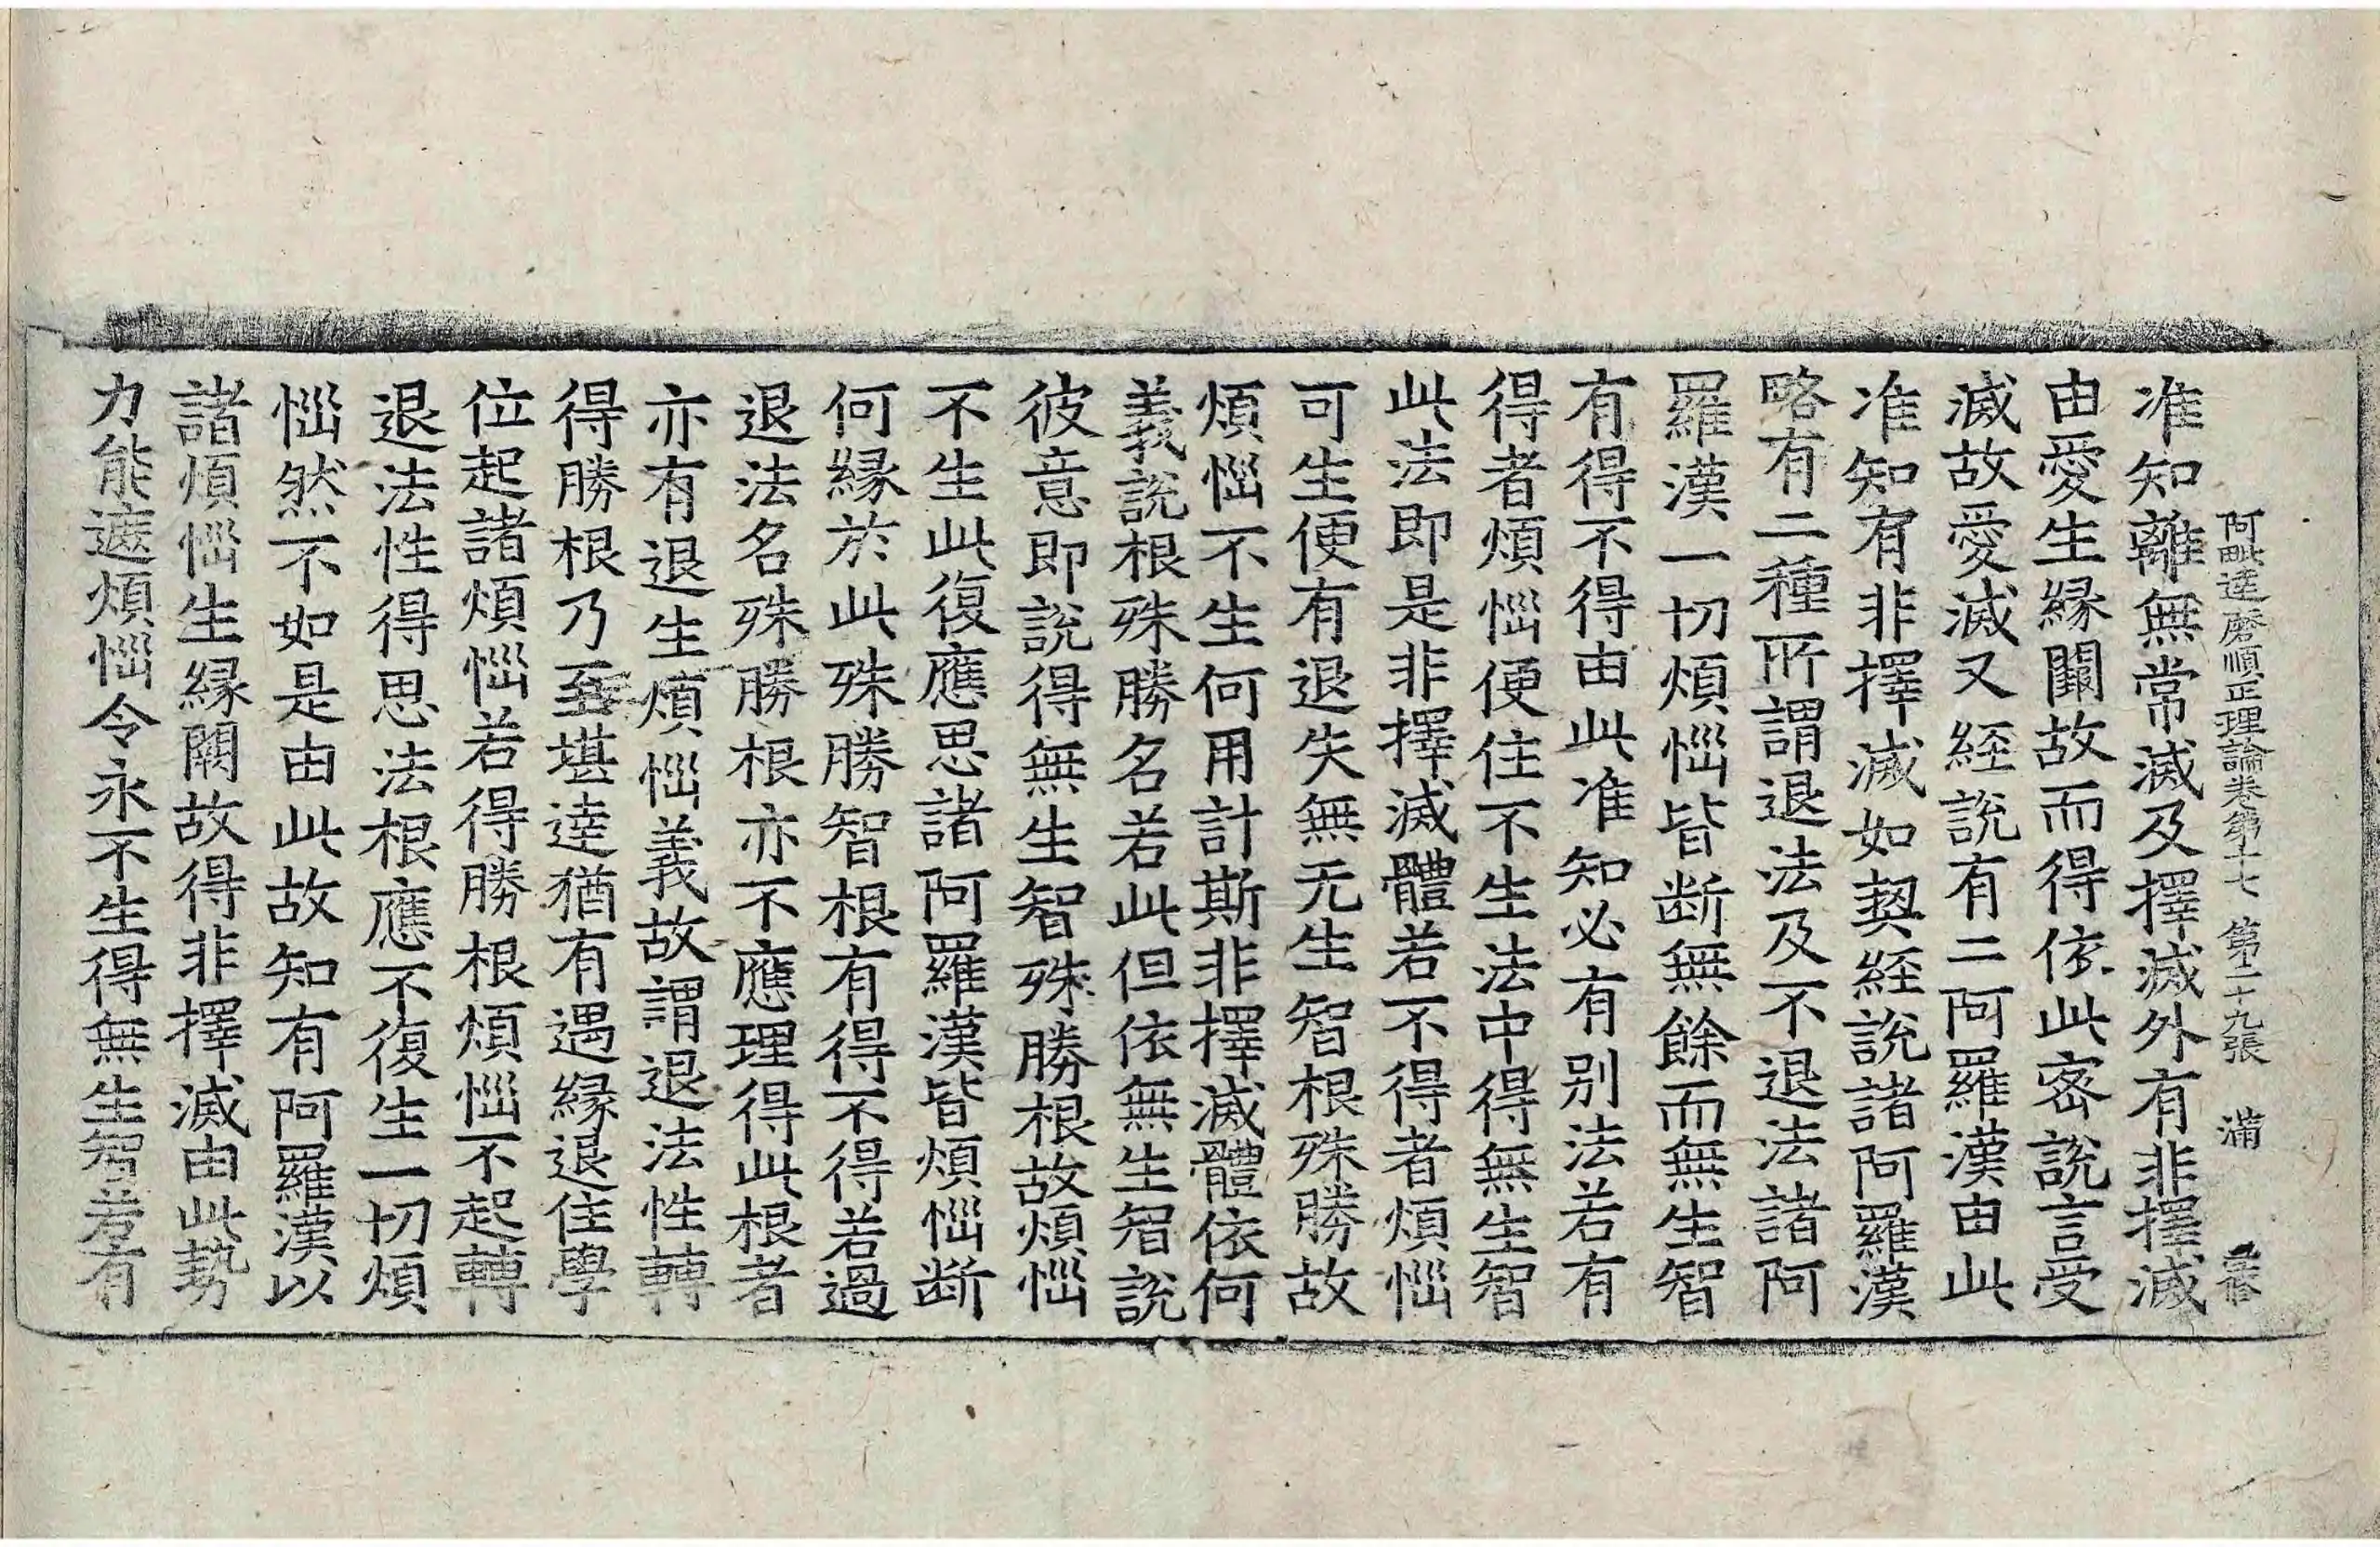 阿毗達磨順正理論卷第十七　第二十九張　滿
准知離無常滅及擇滅外有非擇滅
由愛生緣闕故而得依此密說言受
滅故愛滅又經說有二阿羅漢由此
准知有非擇滅如契經說諸阿羅漢
略有二種所謂退法及不退法諸阿
羅漢一切煩惱皆断無餘而無生智
有得不得由此准知必有別法若有
得者煩惱便住不生法中得無生智
此法即是非擇滅體若不得者煩惱
可生便有退失無无生智根殊勝故
煩惱不生何用計斯非擇滅體依何
義說根殊勝名若此但依無生智說
彼意即說得無生智殊勝根故煩惱
不生此復應思諸阿羅漢皆煩惱断
何緣於此殊勝智根有得不得若過
退法名殊勝根亦不應理得此根者
亦有退生煩惱義故謂退法性轉
得勝根乃至堪達猶有遇緣退住學
位起諸煩惱若得勝根煩惱不起轉
退法性得思法根應不復生一切煩
惱然不如是由此故知有阿羅漢以
諸煩惱生緣闕故得非擇滅由此勢
力能遮煩惱令永不生得無生智若有